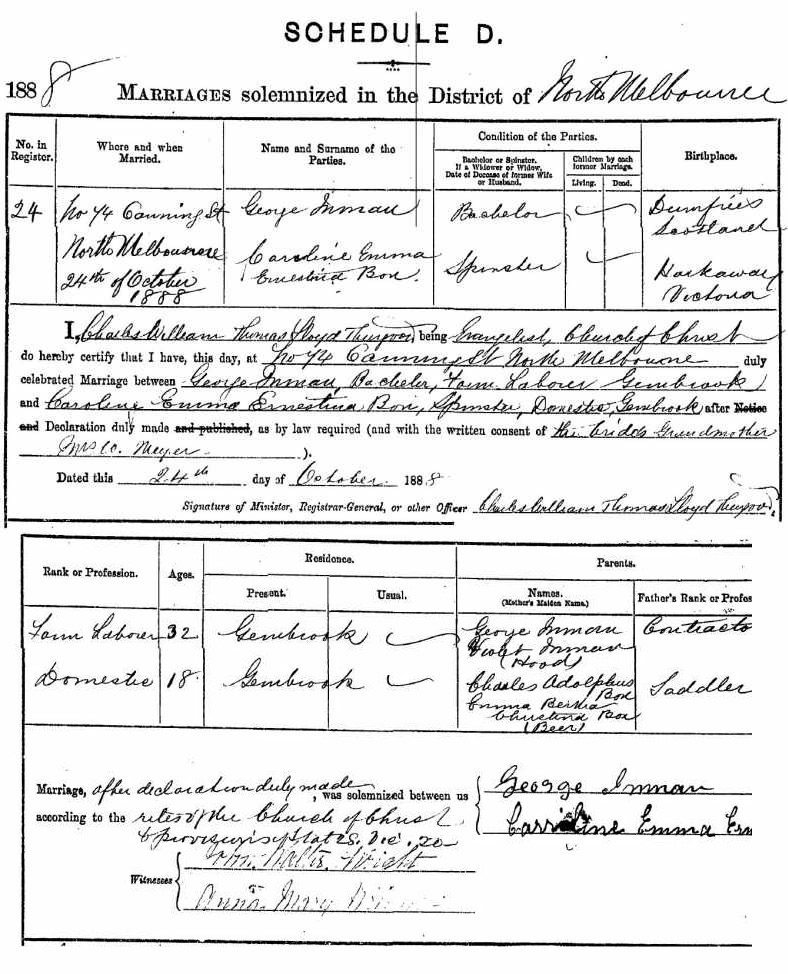 SCHEDULE D.
1888 MARRIAGES solemnized in the District of North Melbourne
No. in Register.
Where and when Married.
Name and Surname of the Parties.
Condition of the Parties.
Bachelor or Spinster. If a Widower or Widow, Date of Decease of former Wife or Husband.
Children by each former Marriage.
Living. Dead.
Birthplace.
24 No 74 Canning St George Inman Bachelor Dumfries
Scotland
North Melbourne Caroline Emma Spinster Harkaway
24th of October Ernestina Box. Victoria
1888
I, Charles William Thomas Lloyd being Evangelist, Church of Christ
do hereby certify that I have, this day, at No 74 Canning St North Melbourne duly
celebrated Marriage between George Inman, Bachelor, Farm Laborer Gembrook
and Caroline Emma Ernestina Box, Spinster, Domestic, Gembrook after Notice
and Declaration duly made and published, as by law required (and with the written consent of the brides Grandmother
Mrs C. Meyer ).
Dated this 24th day of October 1888
Signature of Minister, Registrar-General, or other Officer Charles William Thomas Lloyd
Rank or Profession.
Ages.
Residence.
Present. Usual.
Parents.
Names. (Mother's Maiden Name.)
Father's Rank or Profes
Farm Laborer 32 Gembrook George Inman Contracto
Violet Inman
(Hood)
Domestic 18 Gembrook Charles Adolphus Saddler
Box
Emma Bertha
Christina Box
(Beer)
Marriage, after declaration duly made, was solemnized between us
according to the rites of the Church of Christ
George Inman
Carroline Emma Ern
Witnesses
Wright
Anna Mary